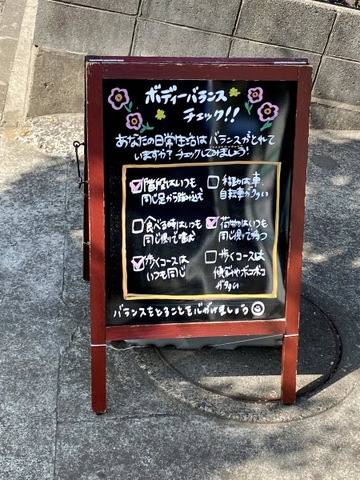 ボディーバランス
チェック!!
あなたの日常生活はバランスがとれて
いますか?チェックしてみましょう!
階段はいつも
同じ足から踏み込む
移動は車
自転車が多い
食べる時はいつも
同じ側で噛む
荷物はいつも
同じ側で持つ
歩くコースは
いつも同じ
歩くコースは
傾斜やボコボコ
が多い
バランスをとることを心がけましょう